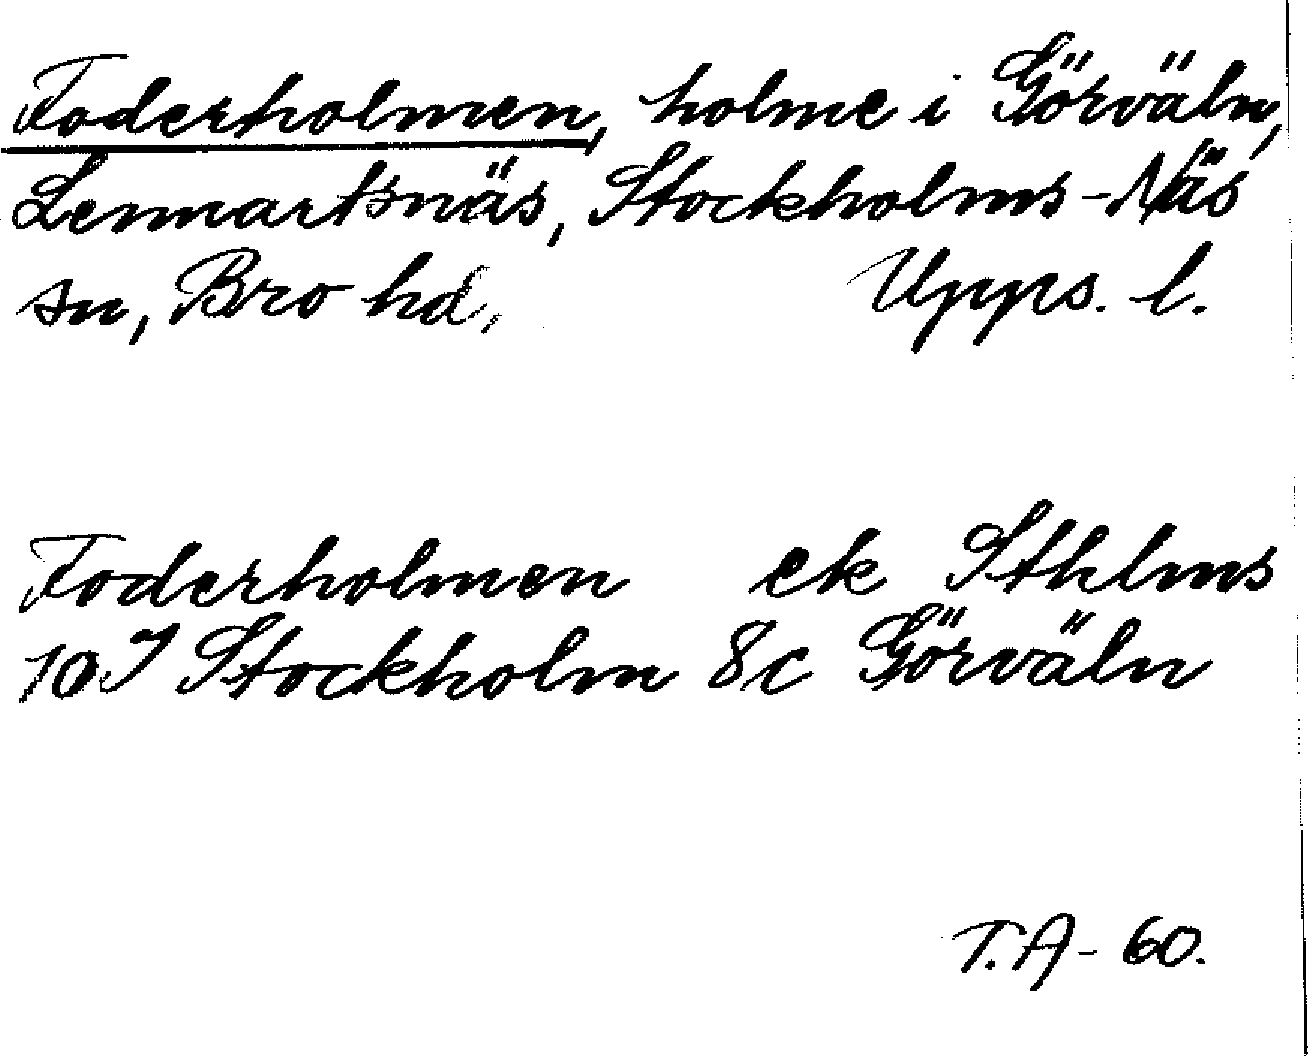 Foderholmen, holme i Görväln,
Lennartsnäs, Stockholms-Näs
sn, Bro hd, Upps. l.
Foderholmen ek Sthlms
10 I Stockholm 8c Görväln
T.A - 60.